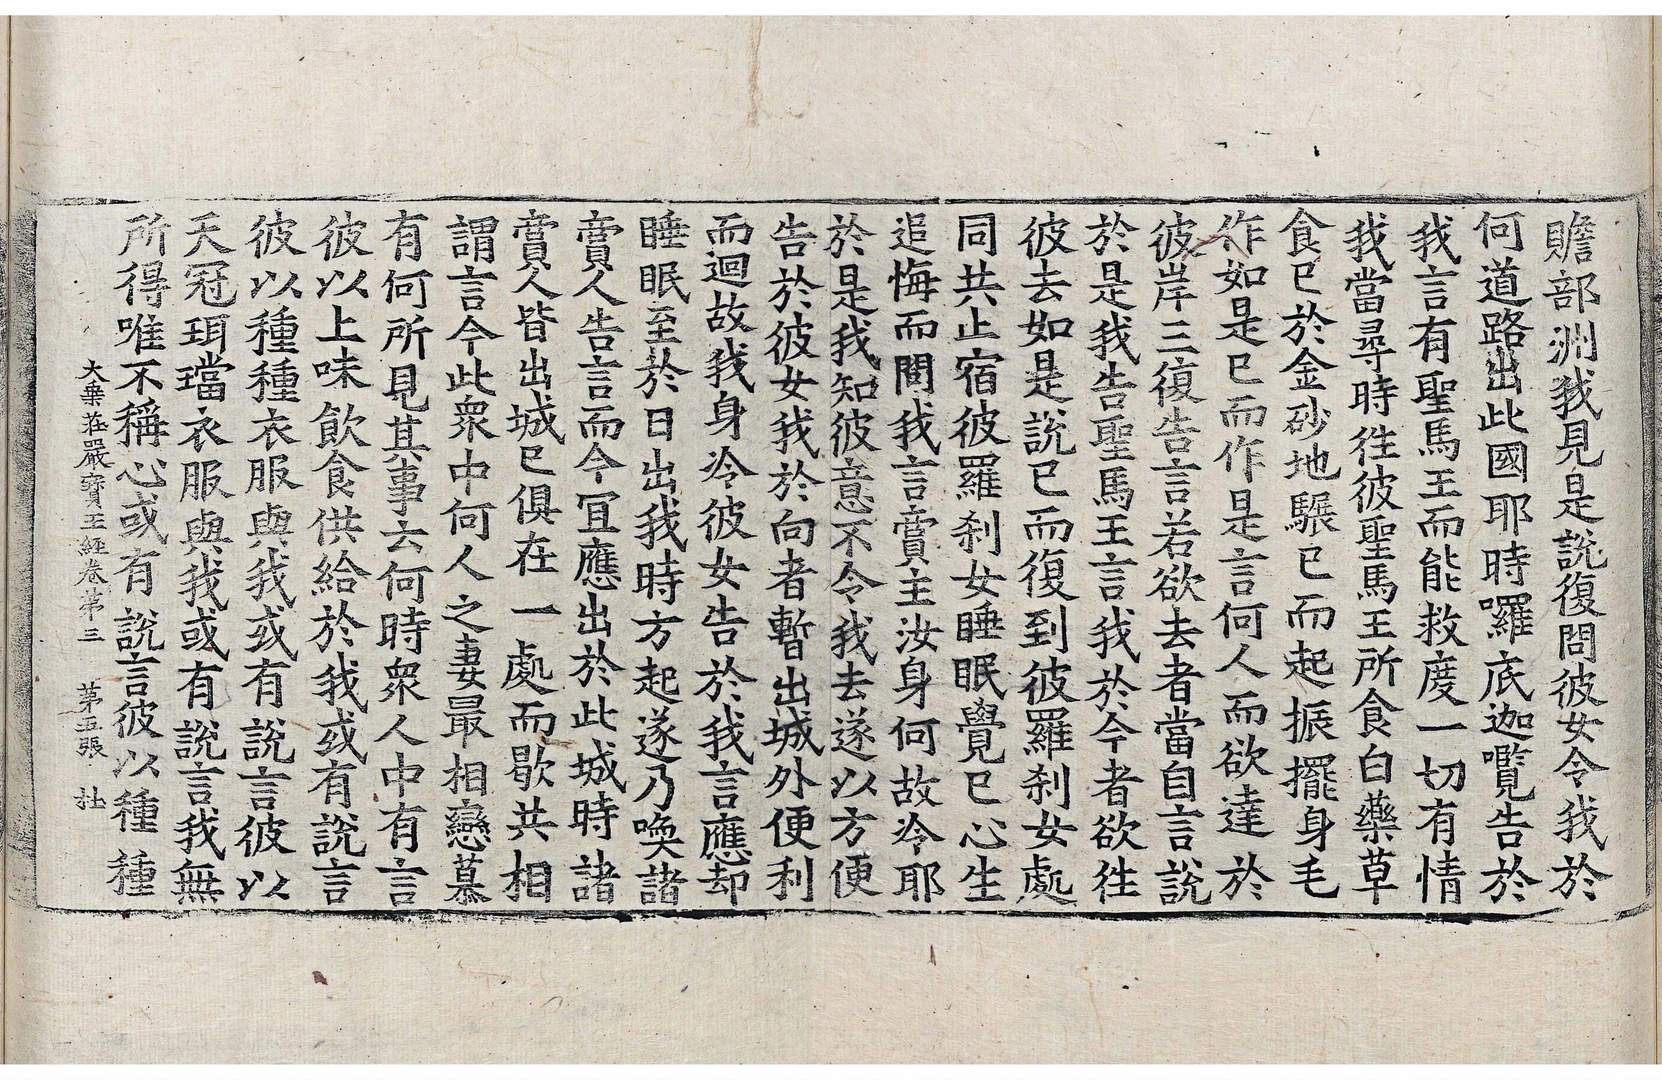 贍部洲我見是說復問彼女令我於
何道路出此國耶時囉底迦囕告於
我言有聖馬王而能救度一切有情
我當尋時徃彼聖馬王所食白藥草
食已於金砂地驏已而起振擺身毛
作如是已而作是言何人而欲達於
彼岸三復告言若欲去者當自言說
於是我告聖馬王言我於今者欲徃
彼去如是說已而復到彼羅刹女處
同共止宿彼羅刹女睡眠覺已心生
追悔而問我言賞主汝身何故冷耶
於是我知彼意不令我去遂以方便
告於彼女我於向者暫出城外便利
而迴故我身冷彼女告於我言應却
睡眠至於日出我時方起遂乃喚諸
賞人告言而今冝應出於此城時諸
賞人皆出城已俱在一處而歇共相
謂言今此衆中何人之妻最相戀慕
有何所見其事云何時衆人中有言
彼以上味飲食供給於我或有說言
彼以種種衣服與我或有說言彼以
天冠珥璫衣服與我或有說言我無
所得唯不稱心或有說言彼以種種
大乗莊嚴寳王經卷第三　第五張　壯